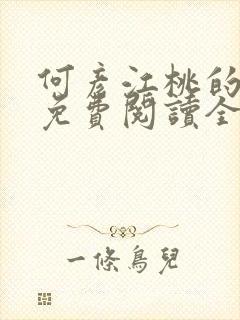 何彥江桃的
免費閱讀全
一條鳥兒